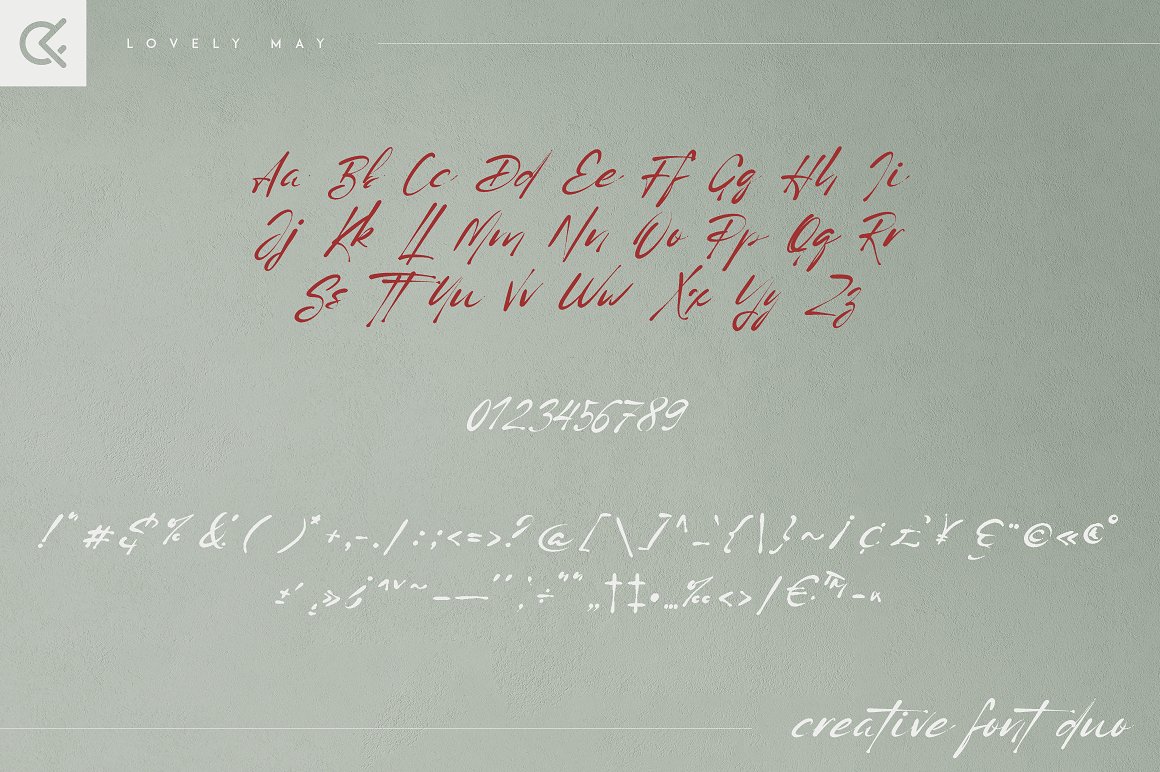 LOVELY MAY
Aa Bb Cc Dd Ee Ff Gg Hh Ii
Jj Kk Ll Mm Nn Oo Pp Qq Rr
Ss Tt Uu Vv Ww Xx Yy Zz
0123456789
!"#$%&'()*+,-./:;<=>?@[\]^_`{|}~¡¢£¥§¨©«®°
±´¸»¿ˆˇ˜–—‘’‚÷“”„†‡•…‰‹›/€™−
creative font duo